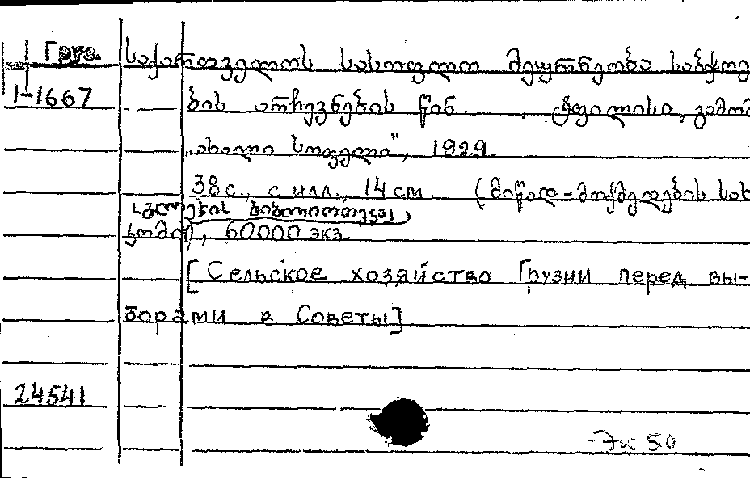 Груз. საქართველოს სასოფლო მეურნეობა საბჭოე-
1-1667 ბის არჩევნების წინ. ტფილისი, გამომ
„ახალი სოფელი", 1929
38 с., с илл., 14 см (მიწად-მოქმედების სახ
გლეხის ბიბლიოთეკა
კომი), 60000 экз
[Сельское хозяйство Грузии перед вы-
борами в Советы]
24541
50